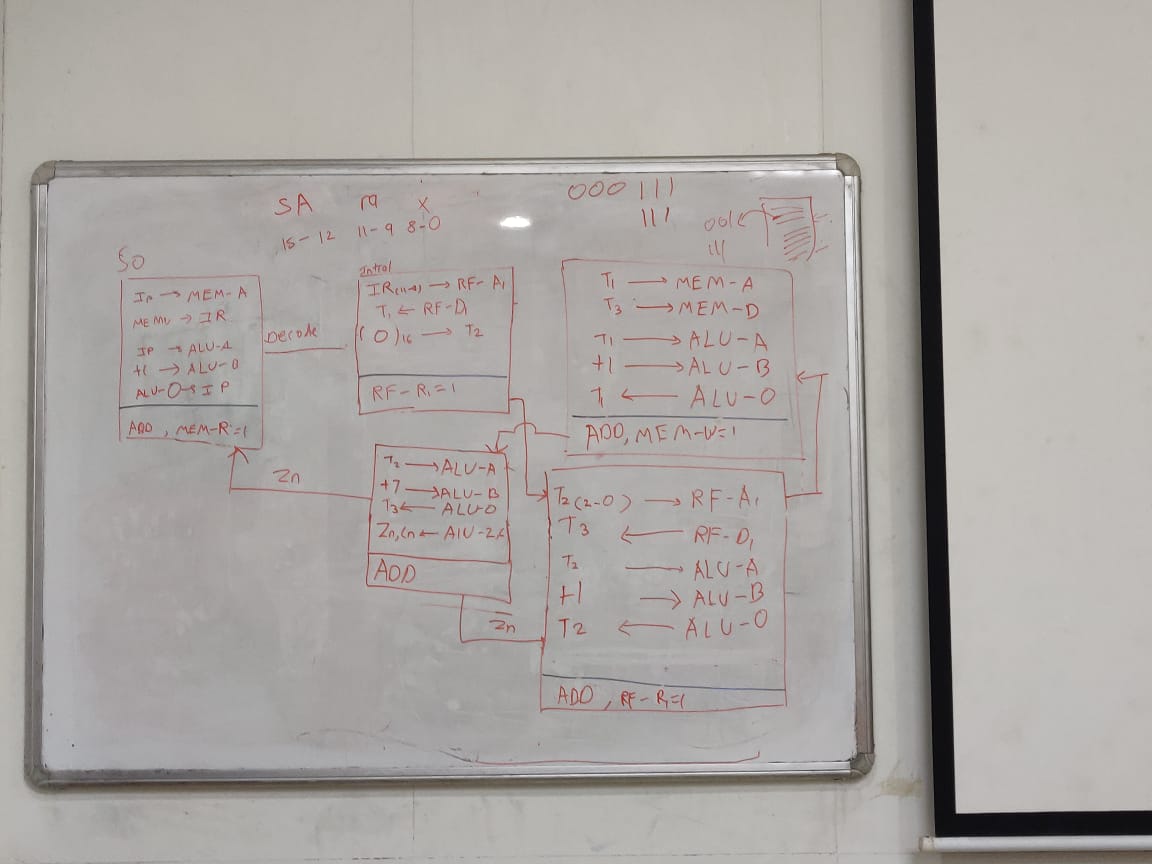 SA ra x
15-12 11-9 8-0
000 111
111
001
111
S0
IP → MEM-A
MEM → IR
IP → ALU-A
+1 → ALU-B
ALU-O → IP
ADD, MEM-R=1
Decode
IR(11-9) → RF-A1
T1 ← RF-D1
(0)16 → T2
RF-R1=1
T1 → MEM-A
T3 → MEM-D
T1 → ALU-A
+1 → ALU-B
T1 ← ALU-O
ADD, MEM-W=1
T2 → ALU-A
+7 → ALU-B
T3 ← ALU-O
Zn, Cn ← ALU-Z,C
ADD
Zn
Z̅n
T2(2-0) → RF-A1
T3 ← RF-D1
T2 → ALU-A
+1 → ALU-B
T2 ← ALU-O
ADD, RF-R1=1